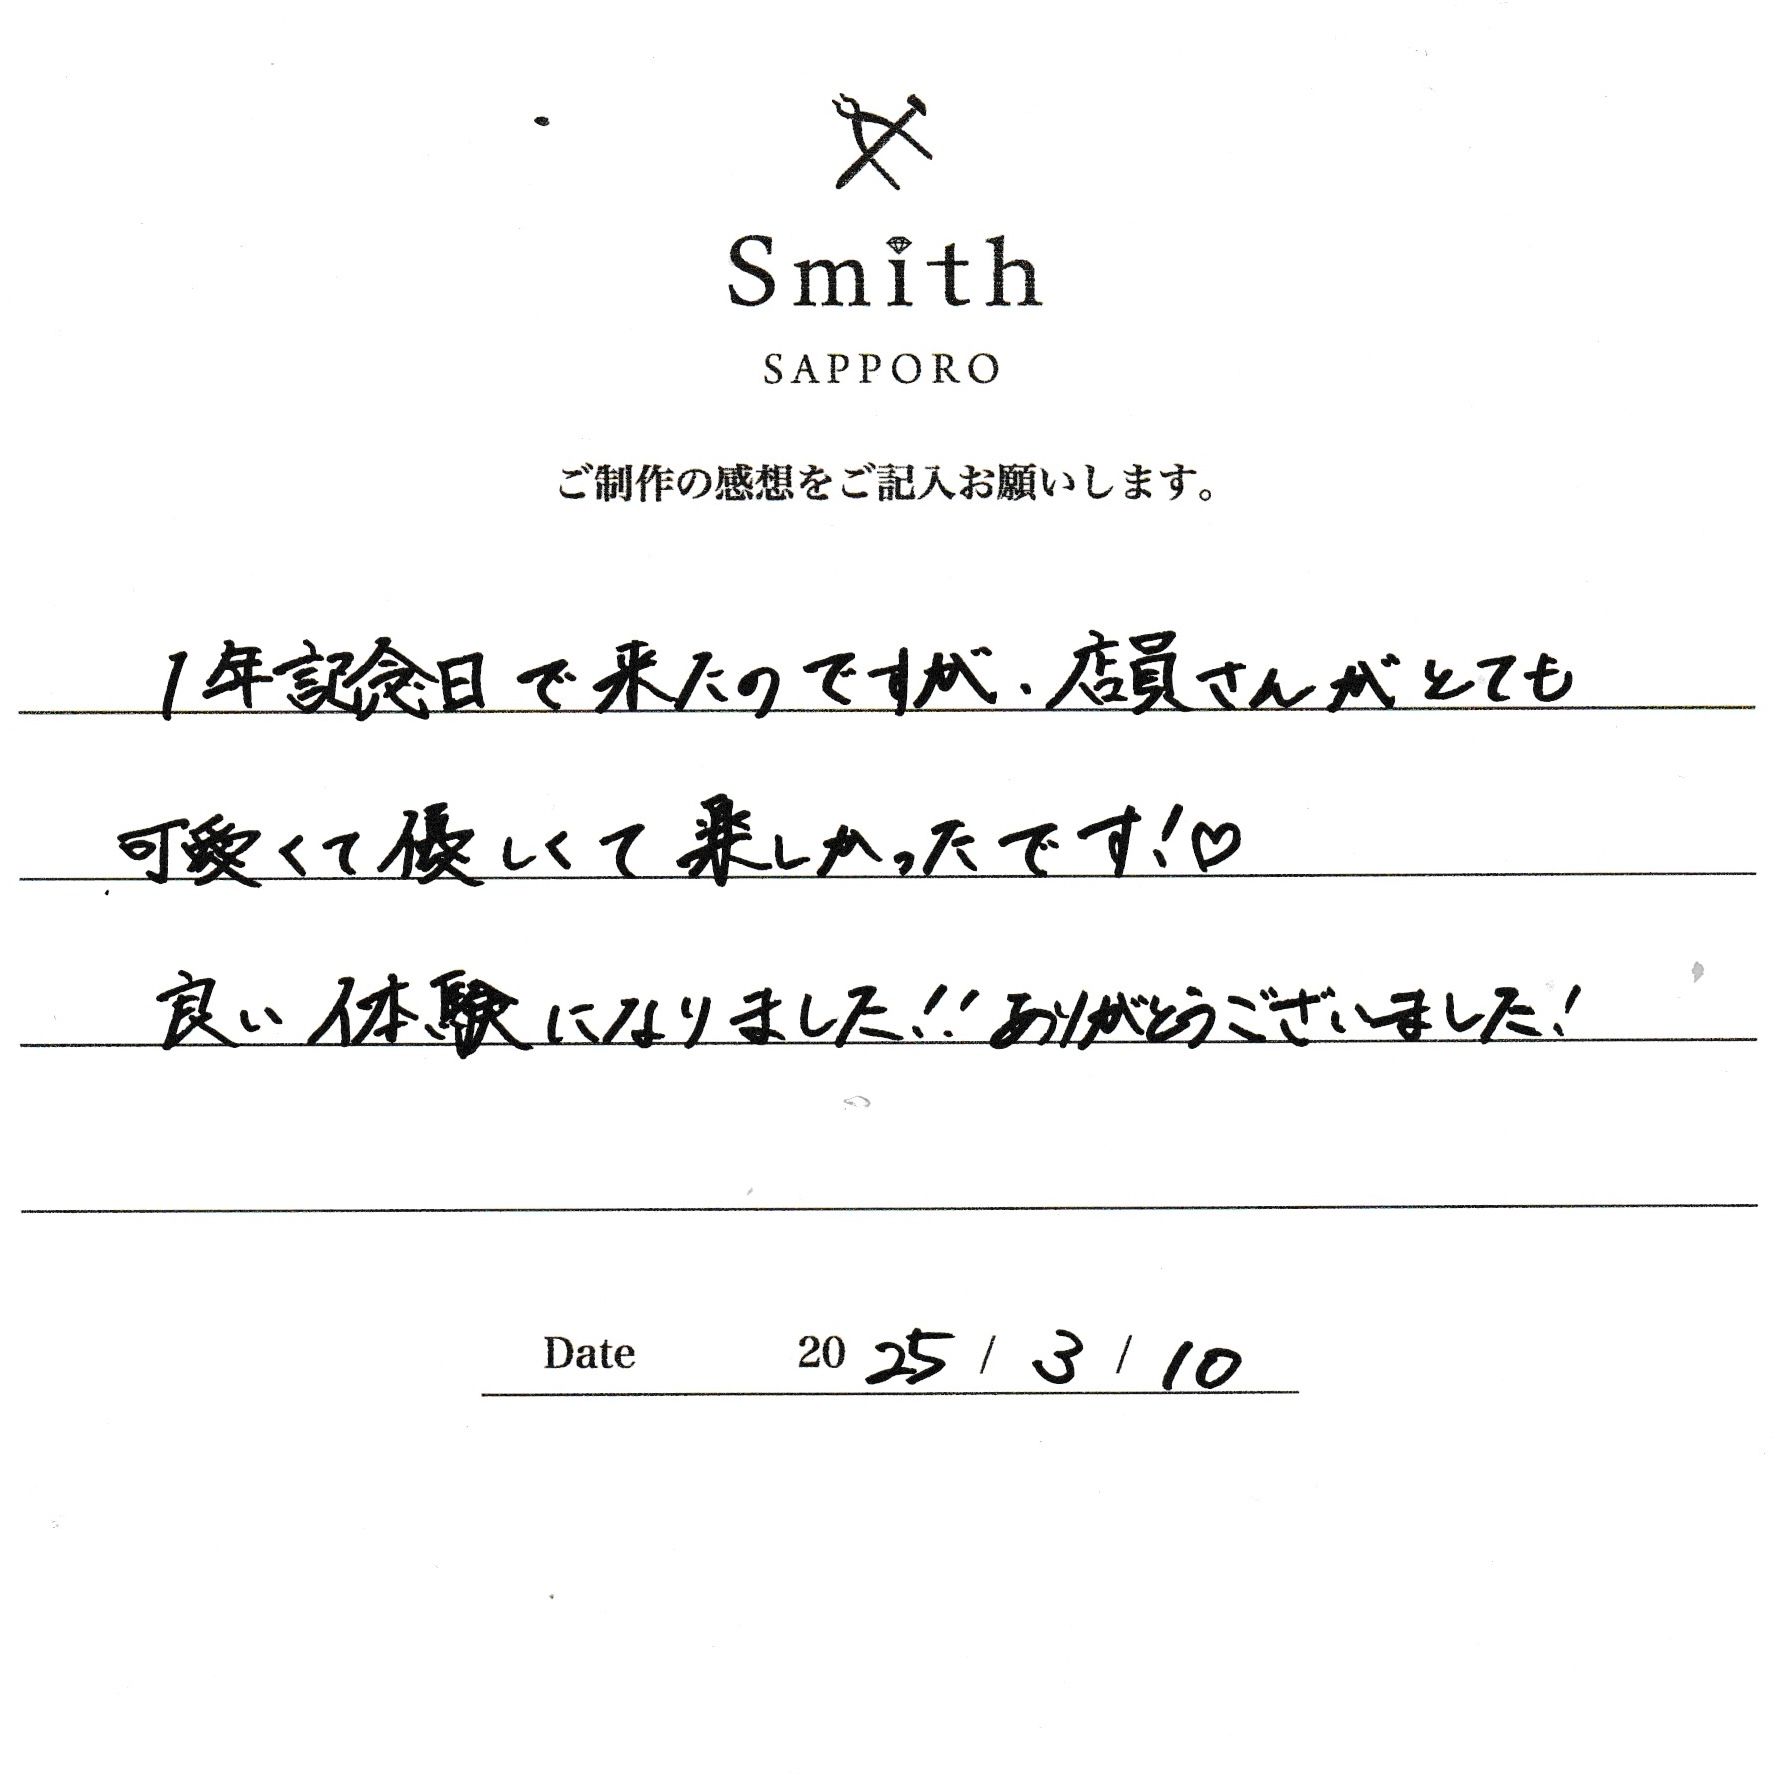 Smith
SAPPORO
ご制作の感想をご記入お願いします。
1年記念日で来たのですが、店員さんがとても
可愛くて優しくて楽しかったです!♡
良い体験になりました!!ありがとうございました!
Date 2025 / 3 / 10